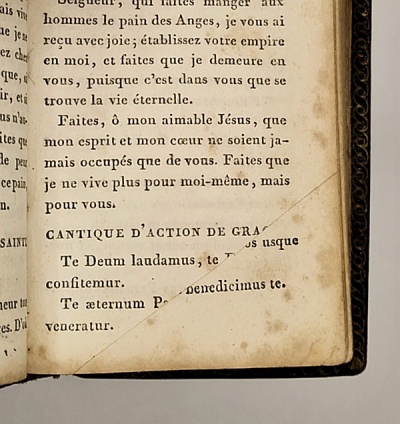 Seigneur, qui faites manger aux
hommes le pain des Anges, je vous ai
reçu avec joie ; établissez votre empire
en moi, et faites que je demeure en
vous, puisque c'est dans vous que se
trouve la vie éternelle.
Faites, ô mon aimable Jésus, que
mon esprit et mon cœur ne soient ja-
mais occupés que de vous. Faites que
je ne vive plus pour moi-même, mais
pour vous.
CANTIQUE D'ACTION DE GRAC
usque
Te Deum laudamus, te
confitemur.
benedicimus te.
Te æternum
veneratur.